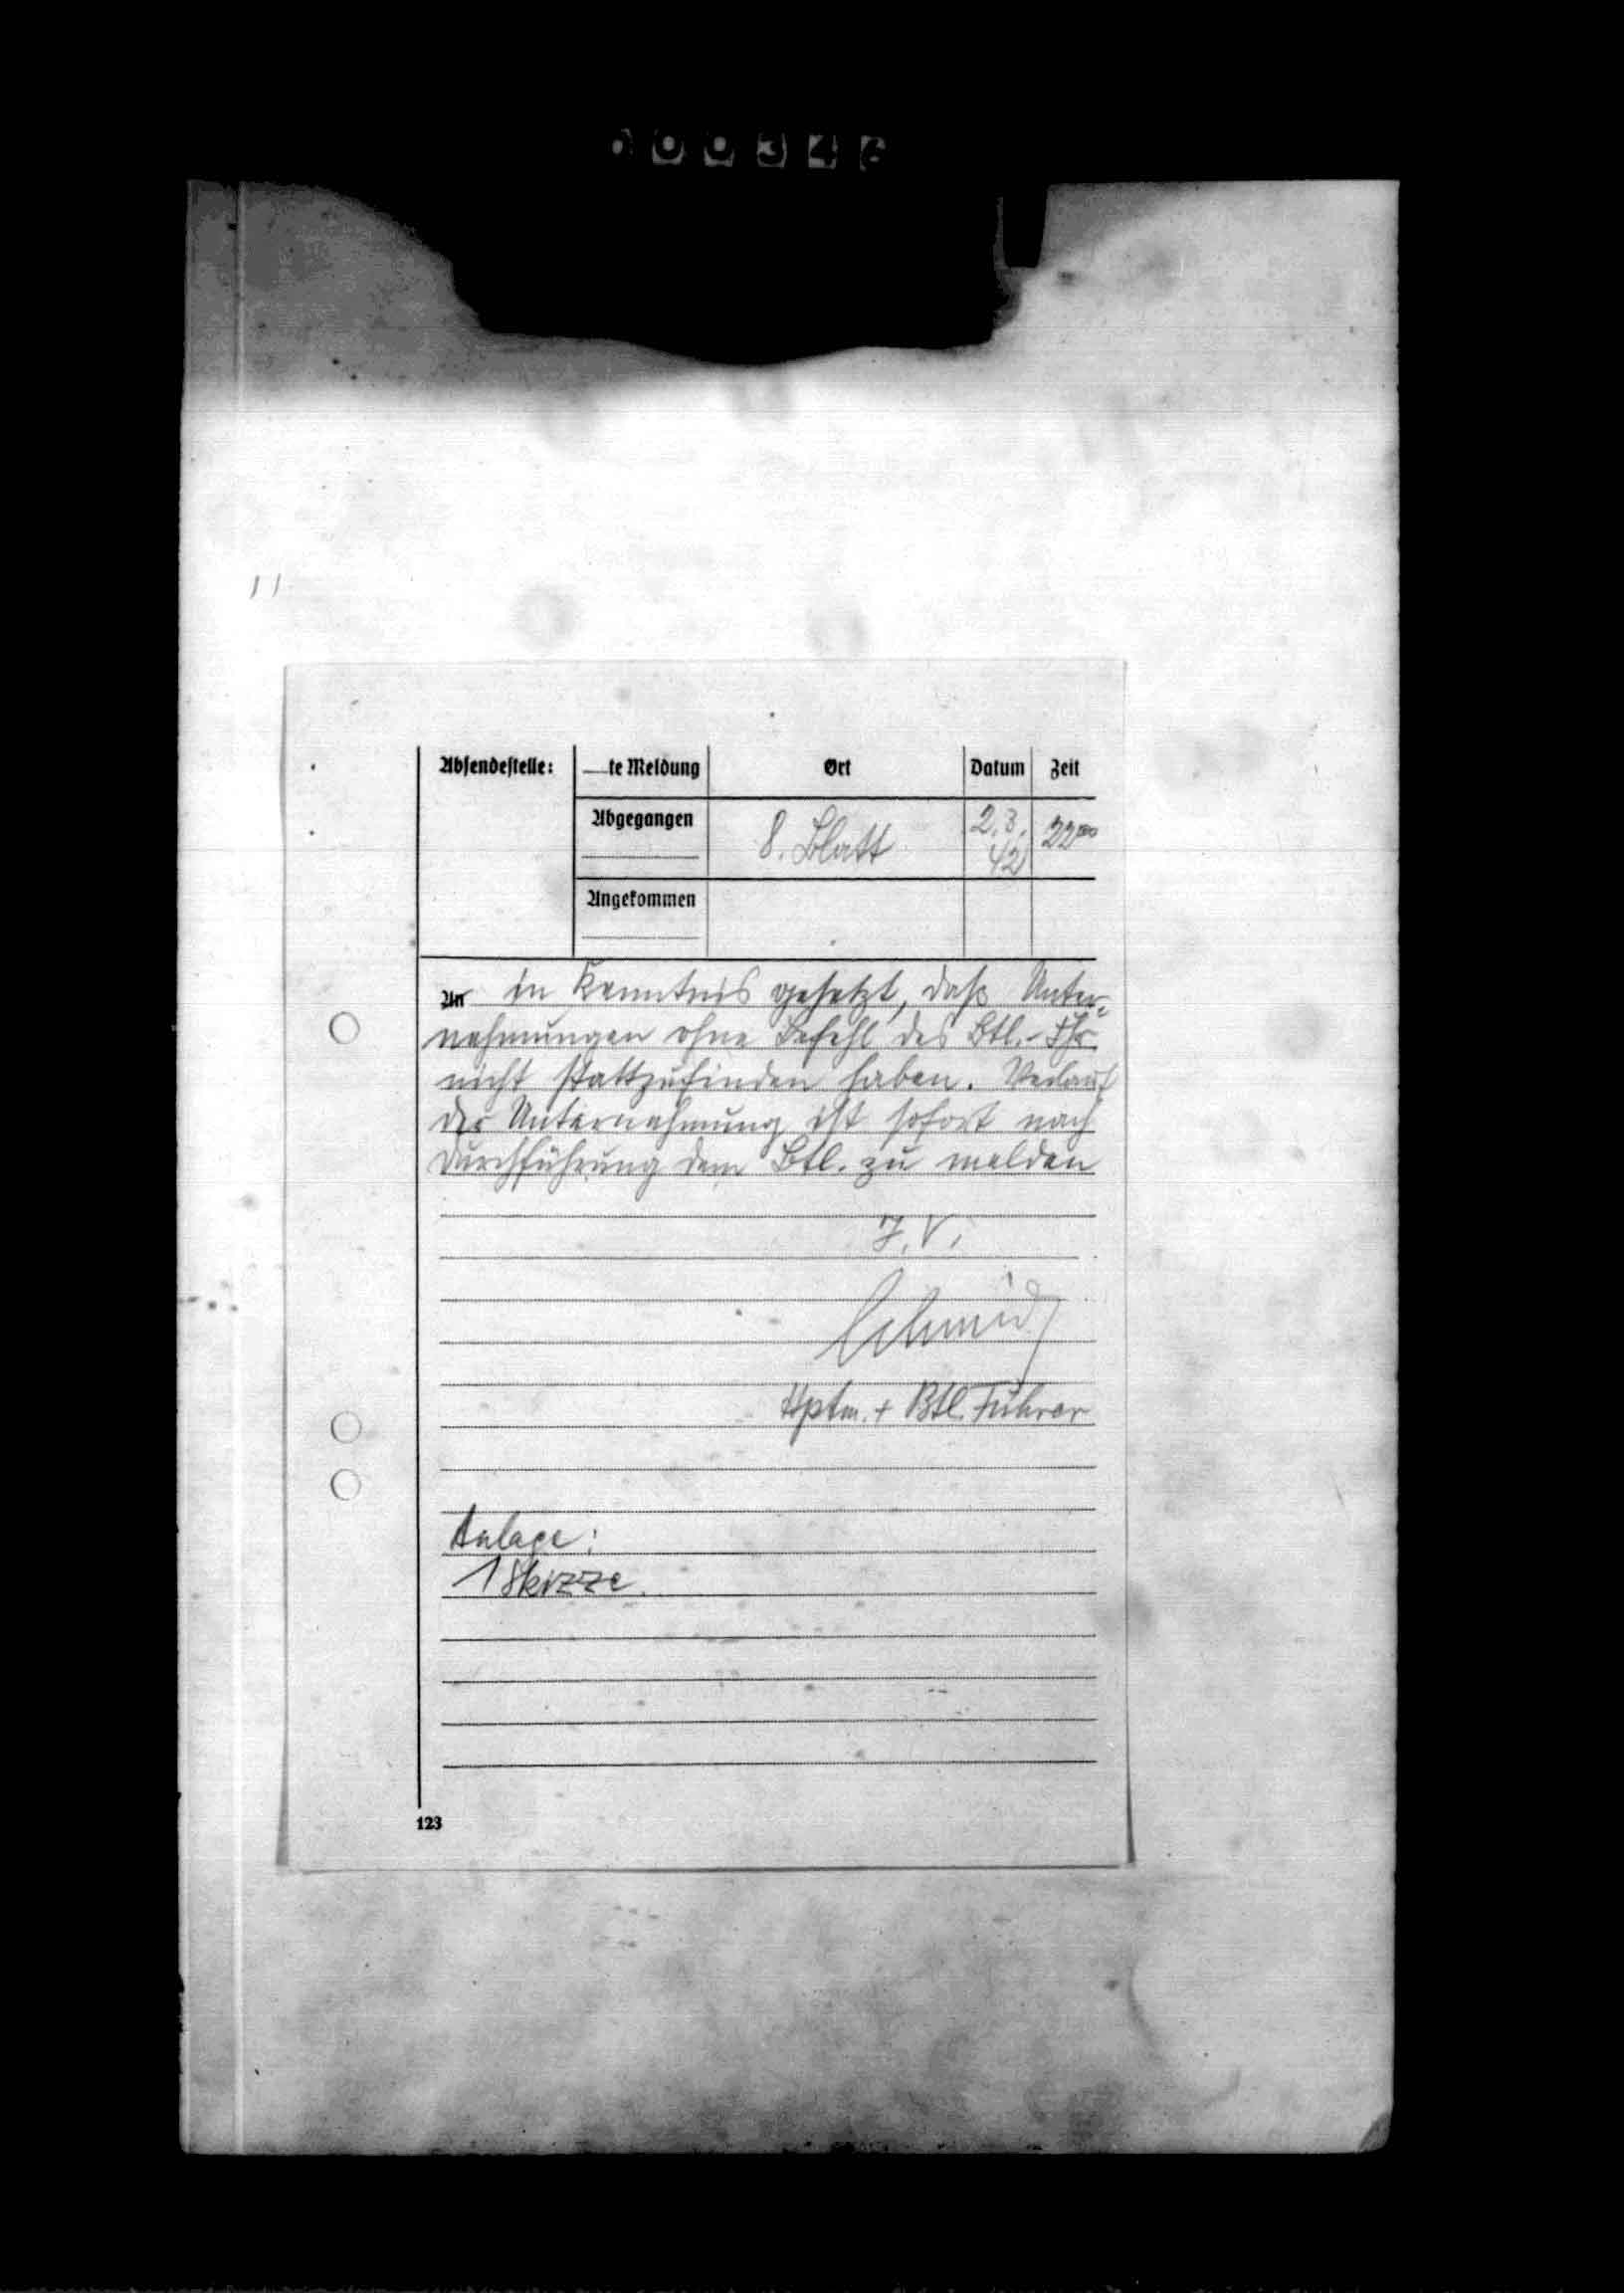 000346
11
Absendestelle: —te Meldung Ort Datum Zeit
Abgegangen 8. Blatt 2.3.42 22⁰⁰
Angekommen
An in Kenntnis gesetzt, daß Unter-
nehmungen ohne Befehl des Btl.-Fhr.
nicht stattzufinden haben. Verlauf
der Unternehmung ist sofort nach
Durchführung dem Btl. zu melden
J.V.
Schmid
Hptm. + Btl. Führer
Anlage:
1 Skizze.
123